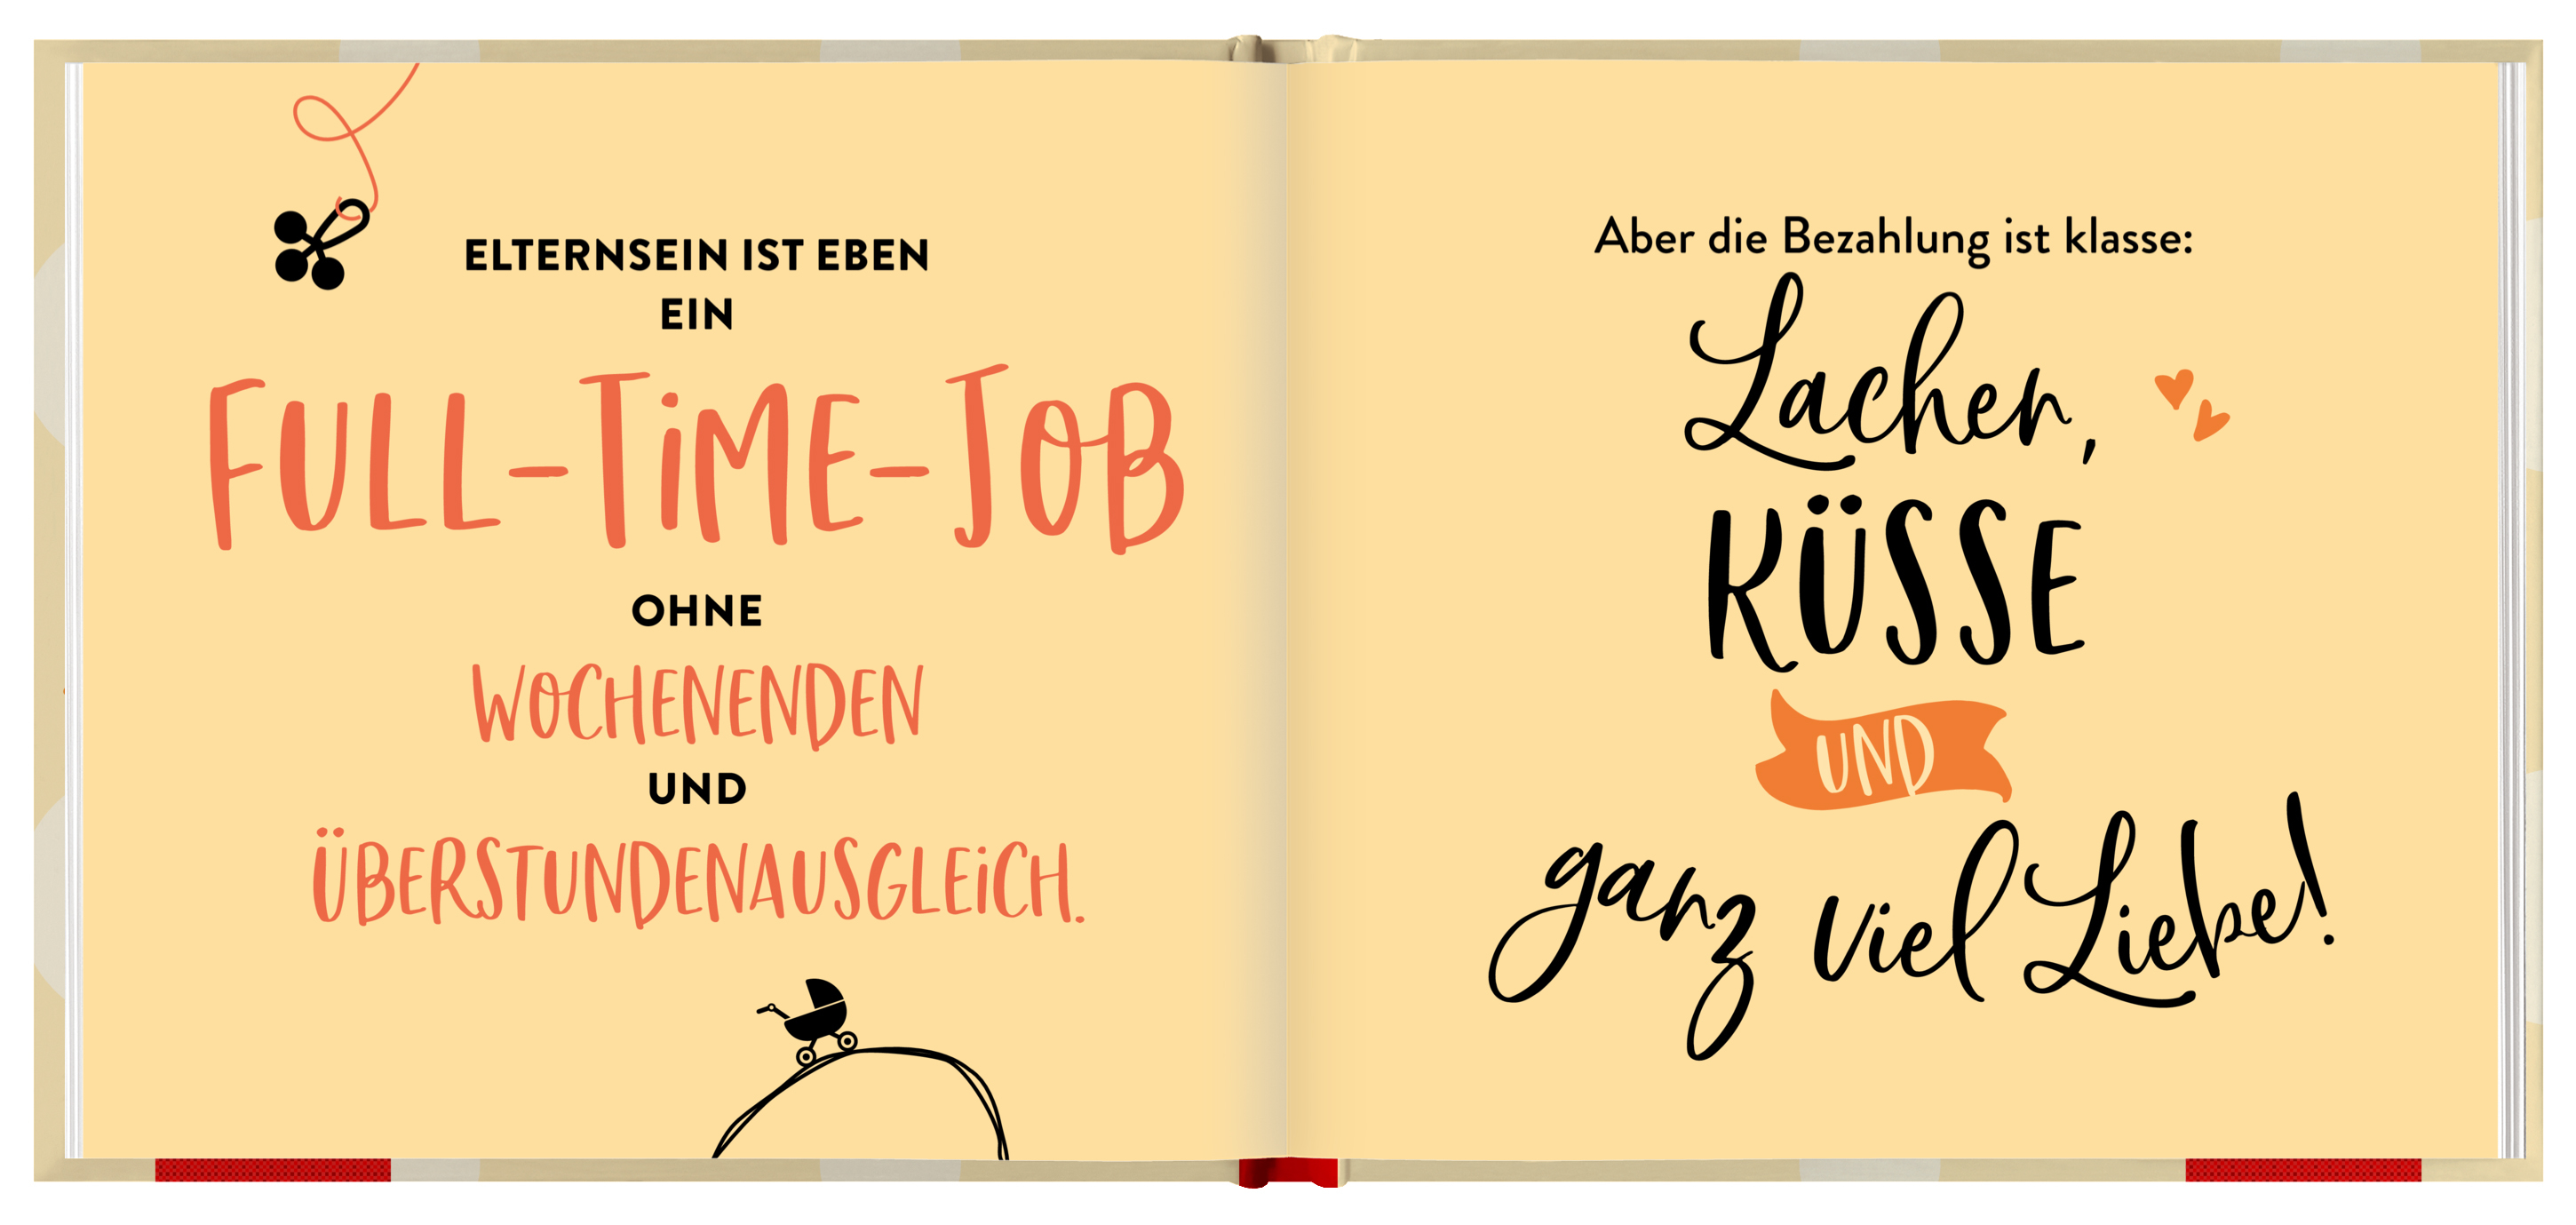 ELTERNSEIN IST EBEN
EIN
FULL-TiME-JOB
OHNE
WOCHENENDEN
UND
ÜBERSTUNDENAUSGLEiCH.
Aber die Bezahlung ist klasse:
Lachen,
KÜSSE
UND
ganz viel Liebe!